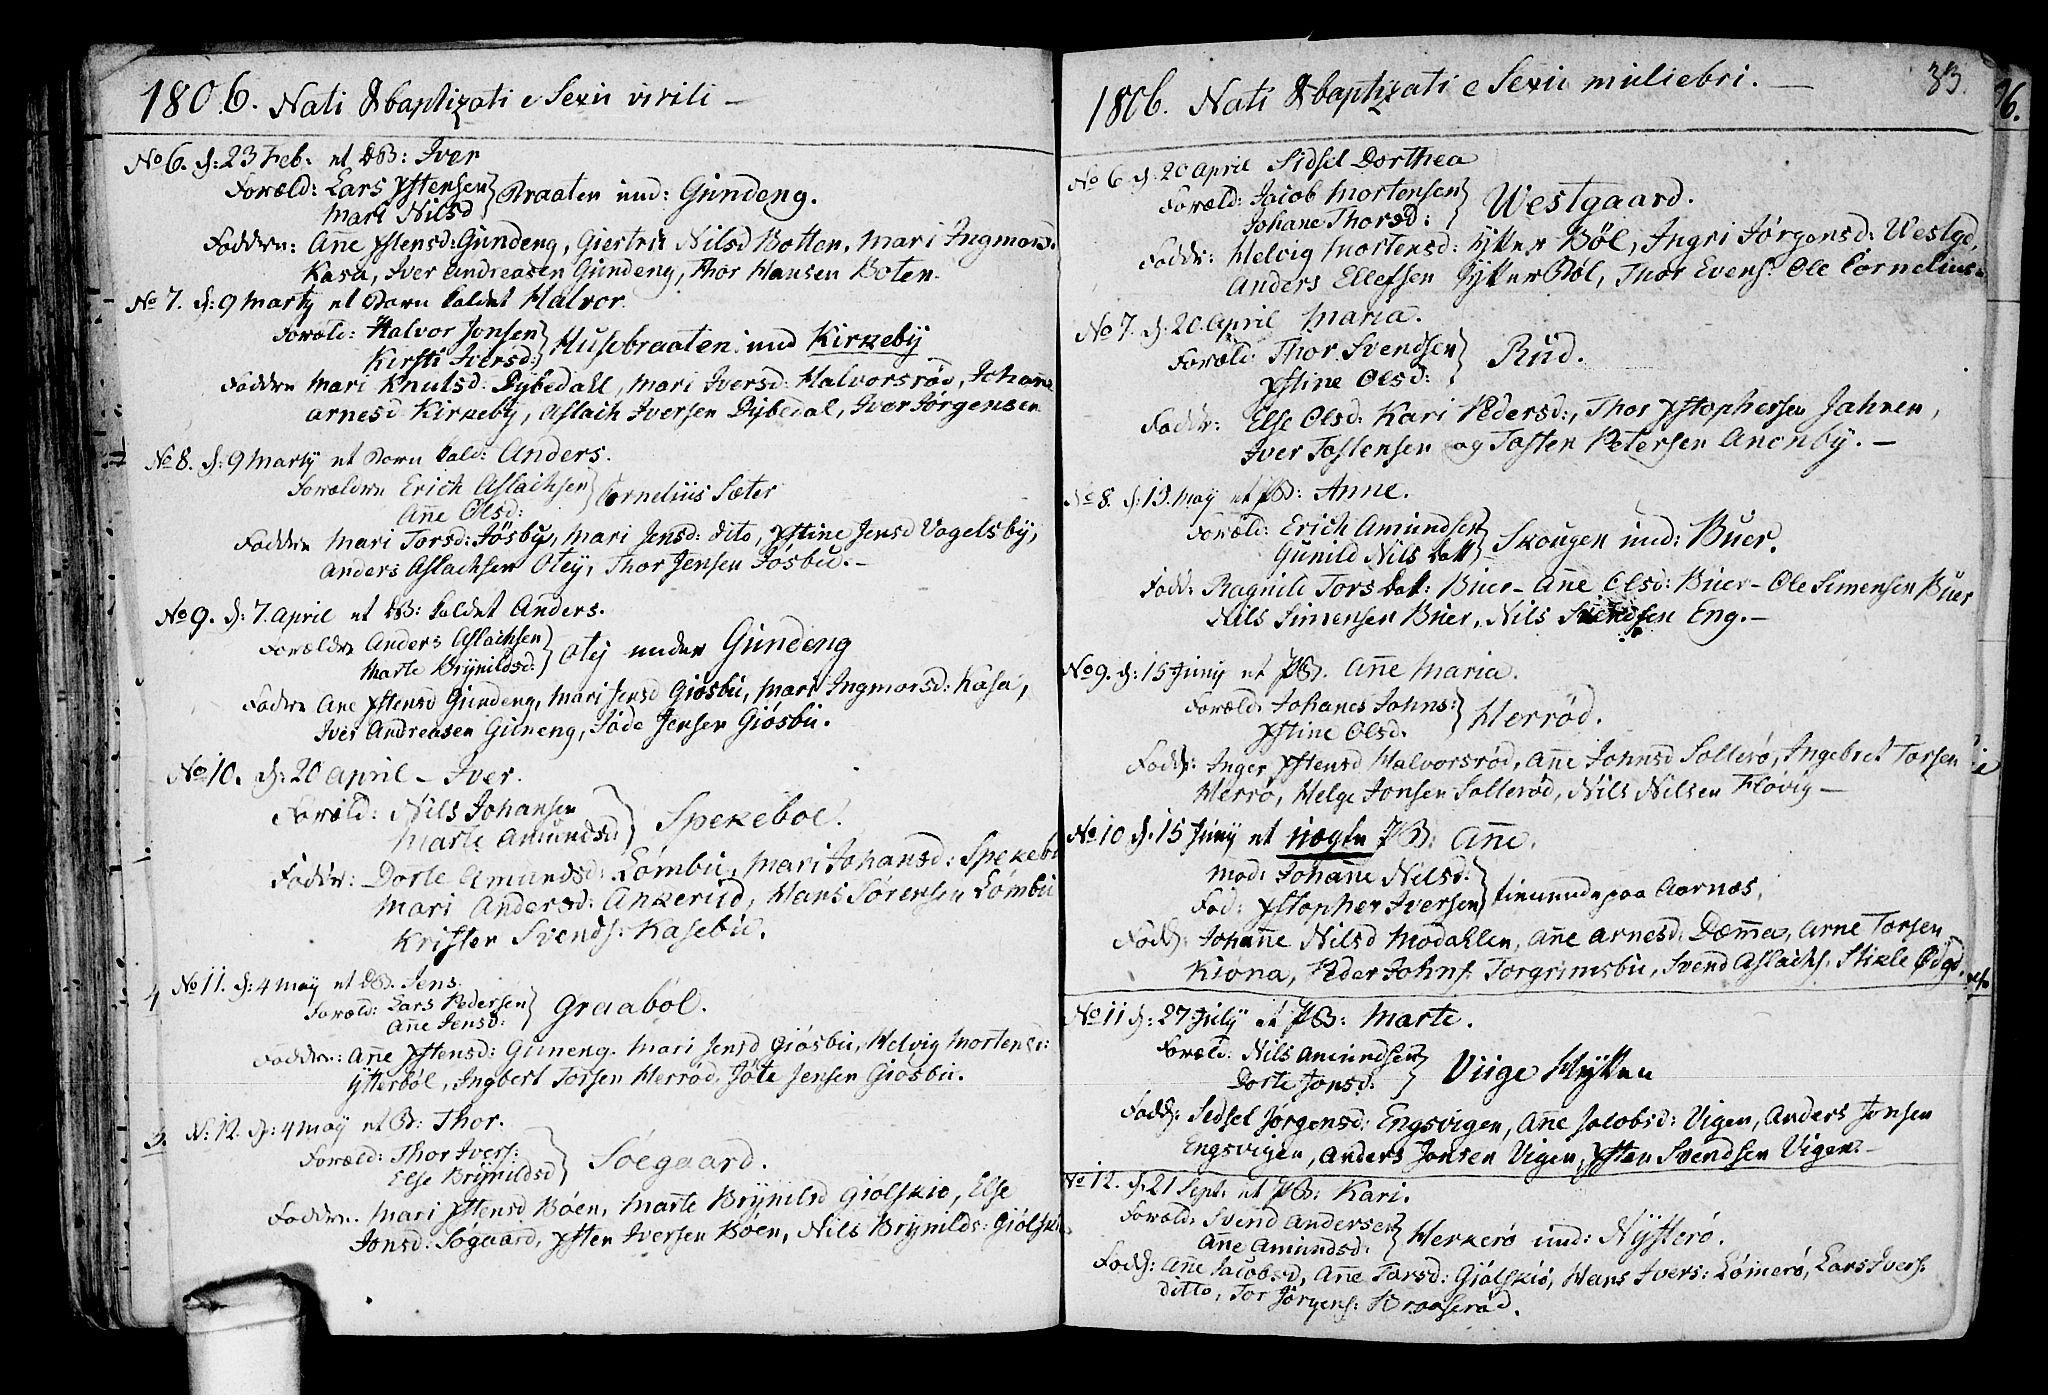 1806. Nati & baptizati e Sexu virili –
No 6. d: 23 Feb. et DB: Iver
Foræld: Lars Xstensen
Mari Nilsd
Braaten und: Gundeng.
Faddre: Añe Xstensd: Gundeng, Giertru Nilsd Botten, Mari Ingmorsd:
Kasa, Iver Andreasen Gundeng, Thor Hansen Boten.
No 7. d: 9 Marty et Barn kaldet Halvor
Foræld: Halvor Jonsen
Kirsti Iversd:
Husebraaten und Kirkeby
Faddre Mari Knutsd: Dybedahl, Mari Iversd: Halvorsrød, Johañe
Arnesd Kirkeby, Aslach Iversen Dybedal, Iver Jørgensen
No 8. d: 9 Marty et Barn kald: Anders.
Forældre Erich Aslachsen
Añe Olsd:
Cornelius Sæter
Faddre Mari Torsd: Jøsbu, Mari Jensd: dito, Xstine Jensd Vagelsby,
Anders Aslachsen Otey, Thor Jensen Jøsbu. –
No 9. d: 7 April et DB: kaldet Anders.
Forældre Anders Aslachsen
Marte Brynildsd:
Otej under Gundeng
Faddre Ane Xstensd Gundeng, Mari Jensd Giøsbu, Mari Ingmorsd: Kasa,
Iver Andreasen Guneng, Jøde Jensen Giøsbu.
No 10. d: 20 April – Iver.
Foræld: Nils Johansen
Marte Amundsd:
Spekeboe.
Faddr: Dorte Amundsd: Lømbu, Mari Johansd: Spekebu
Mari Andersd: Ankerud, Hans Sørensen Lømbu
Kristen Svends: Kasebu.
No 11. d: 4 May et DB. Jens.
Foræld: Lars Pedersen
Añe Jensd:
Graabøl.
Faddre: Añe Xstensd: Guneng. Mari Jensd Giøsbu, Helvig Mortensd:
Ytterbøl, Ingbert Torsen Herrød, Jøte Jensen Giøsbu.
N: 12. d: 4 May et B: Thor.
Foræld: Thor Ivers:
Else Brynildsd
Søegaard.
Faddre. Mari Xstensd Bøen, Marte Brynilsd Giølskiø, Else
Jonsd: Søgaard, Xsten Iversen Bøen, Nils Brynilds: Giølski
1806. Nati & baptizati e Sexu muliebri. –
33.
No 6 d: 20 April Sidsel Dorthea
Foræld: Jacob Mortensen
Johane Thorsd:
Westgaard.
Faddr: Helvig Mortensd: Ytter Bøl, Ingri Jørgensd: Westgd,
Anders Ellefsen Ytter Bøl, Thor Evens: Ole Cornelius
No 7. d: 20 April Maria.
Foræld: Thor Svendsen
Xstine Olsd:
Rud.
Faddr: Else Olsd: Kari Pedersd:, Thor Xstophersen Jahren,
Iver Tostensen og Tosten Petersen Anonby. –
No 8. d: 13. May et PB: Anne.
Foræld: Erich Amundsen
Gunild Nils Datt
Skougen und: Buer.
Fadd: Ragnild Tors Dat: Buer – Añe Olsd: Buer – Ole Simensen Buer
Nils Simensen Buer, Nils Svendsen Eng. –
No 9. d: 15 Juny et PB. Añe Maria.
Foræld: Johanes Johns:
Xstine Olsd.
Herrød.
Fadds: Inger Xstensd Halvorsrød, Añe Johnsd Sollerø, Ingebret Torsen
Herrø, Helge Jonsen Sollerød, Nils Nilsen Fløvig –
No 10 d: 15 Juny et uægte PB: Añe.
Mod: Johañe Nilsd:
Fad: Xstopher Iversen
tienende paa Aarnæs,
Fadds: Johañe Nilsd Modahlen, Añe Arnesd: Dæm̃a, Arne Torsen
Kiøna, Peder Johns. Torgrimsbu, Svend Aslachs. Stikle Ødgd.
No 11 d: 27 July et PB: Marte.
Foræld: Nils Amundsen
Dorte Jonsd:
Viige Hytten
Fadds: Sedsel Jørgensd: Engsvigen, Añe Jacobsd: Vigen, Anders Jonsen
Engsvigen, Anders Jonsen Vigen, Xsten Svendsen Vigen –
No 12. d: 21 Sept. et PB: Kari.
Foræld: Svend Andersen
Añe Amundsd:
Herkerø und: Nysterø.
Fadds: Añe Jacobsd, Añe Torsd: Giølskiø, Hans Ivers: Lømerø, Lars Ivers:
ditto, Tor Jørgens: Braaserød.